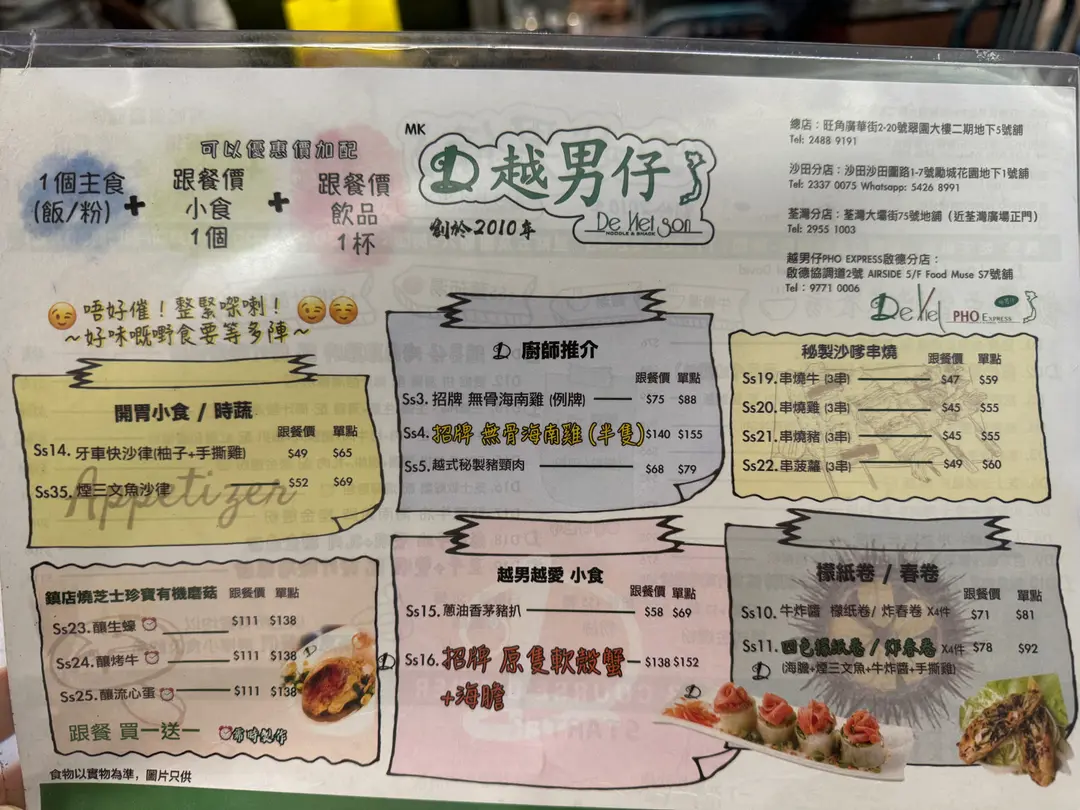 可以優惠價加配
1個主食
(飯/粉)
+
跟餐價
小食
1個
+
跟餐價
飲品
1杯
MK
越男仔
創於2010年
De Kel Son
NOODLE & SNACK
總店：旺角廣華街2-20號翠園大樓二期地下5號舖
Tel: 2488 9191
沙田分店：沙田沙田圍路1-7號勵城花園地下1號舖
Tel: 2337 0075 Whatsapp: 5426 8991
荃灣分店：荃灣大壩街75號地舖（近荃灣廣場正門）
Tel: 2955 1003
越男仔PHO EXPRESS啟德分店：
啟德協調道2號 AIRSIDE 5/F Food Muse S7號舖
Tel：9771 0006
De Kel PHO EXPRESS
😉唔好催！整緊㗎喇！😉☺️
～好味嘅嘢食要等多陣～
開胃小食 / 時蔬
跟餐價 單點
Ss14. 牙車快沙律(柚子+手撕雞) $49 $65
Ss35. 煙三文魚沙律 $52 $69
Appetizer
廚師推介
跟餐價 單點
Ss3. 招牌 無骨海南雞 (例牌) $75 $88
Ss4. 招牌 無骨海南雞 (半隻) $140 $155
Ss5. 越式秘製豬頸肉 $68 $79
秘製沙嗲串燒 跟餐價 單點
Ss19. 串燒牛 (3串) $47 $59
Ss20. 串燒雞 (3串) $45 $55
Ss21. 串燒豬 (3串) $45 $55
Ss22. 串菠蘿 (3串) $49 $60
鎮店燒芝士珍寶有機磨菇 跟餐價 單點
Ss23. 釀生蠔 $111 $138
Ss24. 釀烤牛 $111 $138
Ss25. 釀流心蛋 $111 $138
跟餐 買一送一 需時製作
越男越愛 小食
跟餐價 單點
Ss15. 蔥油香茅豬扒 $58 $69
Ss16. 招牌 原隻軟殼蟹 $138 $152
+海膽
檬紙卷 / 春卷
跟餐價 單點
Ss10. 牛炸醬 檬紙卷/ 炸春卷 X4件 $71 $81
Ss11. 四色檬紙卷 / 炸春卷 X4件 $78 $92
(海膽+煙三文魚+牛炸醬+手撕雞)
食物以實物為準，圖片只供